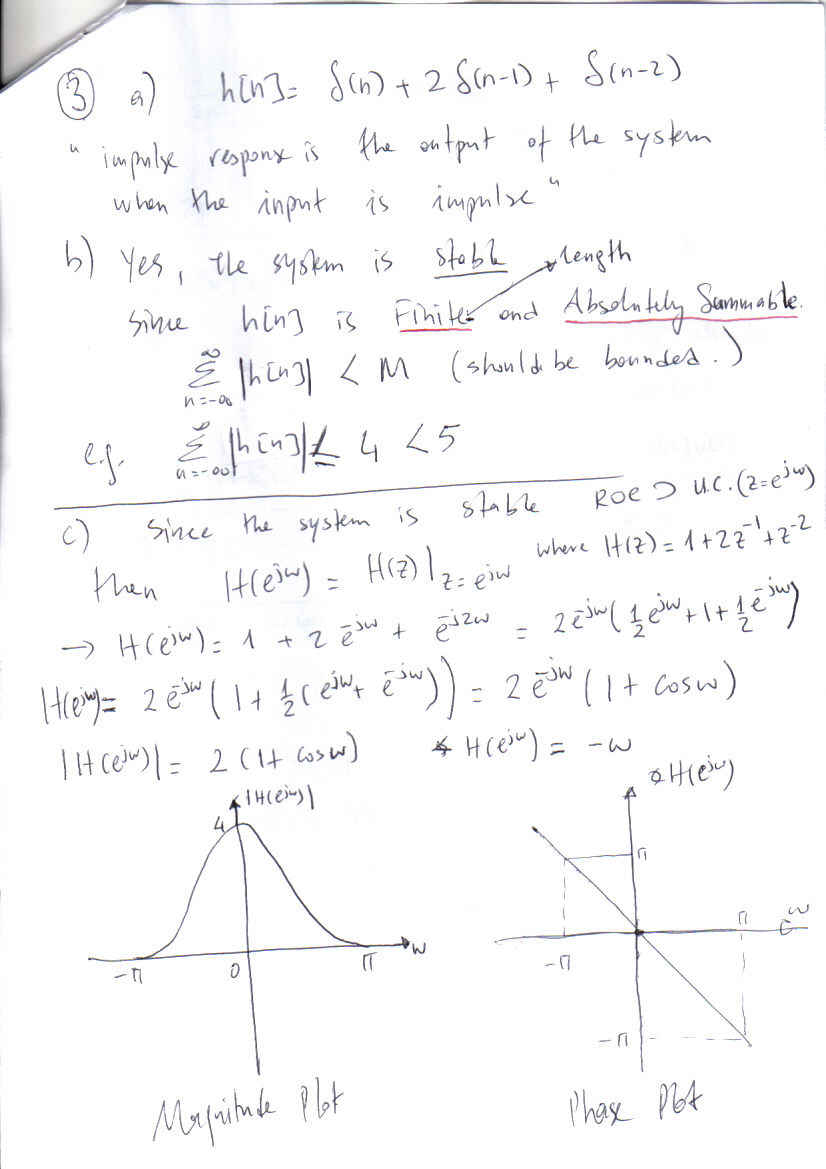 ③ a) h[n] = δ(n) + 2 δ(n-1) + δ(n-2)
" impulse response is the output of the system
when the input is impulse "
b) Yes, the system is stable
length
Since h[n] is Finite and Absolutely Summable.
∞
Σ |h[n]| < M (should be bounded.)
n=-∞
e.g. ∞
Σ |h[n]| ≤ 4 < 5
n=-∞
c) Since the system is stable ROC ⊃ U.C. (z=e^{jω})
then H(e^{jω}) = H(z)|_{z=e^{jω}} where H(z) = 1+2z^{-1}+z^{-2}
→ H(e^{jω}) = 1 + 2 e^{-jω} + e^{-j2ω} = 2e^{-jω}(1/2 e^{jω} + 1 + 1/2 e^{-jω})
H(e^{jω}) = 2 e^{-jω} (1 + 1/2 (e^{jω} + e^{-jω})) = 2 e^{-jω} (1 + cosω)
|H(e^{jω})| = 2 (1 + cosω) ∢ H(e^{jω}) = -ω
|H(e^{jω})| ∢H(e^{jω})
4 π
π ω
-π 0 π ω -π
-π
Magnitude Plot Phase Plot